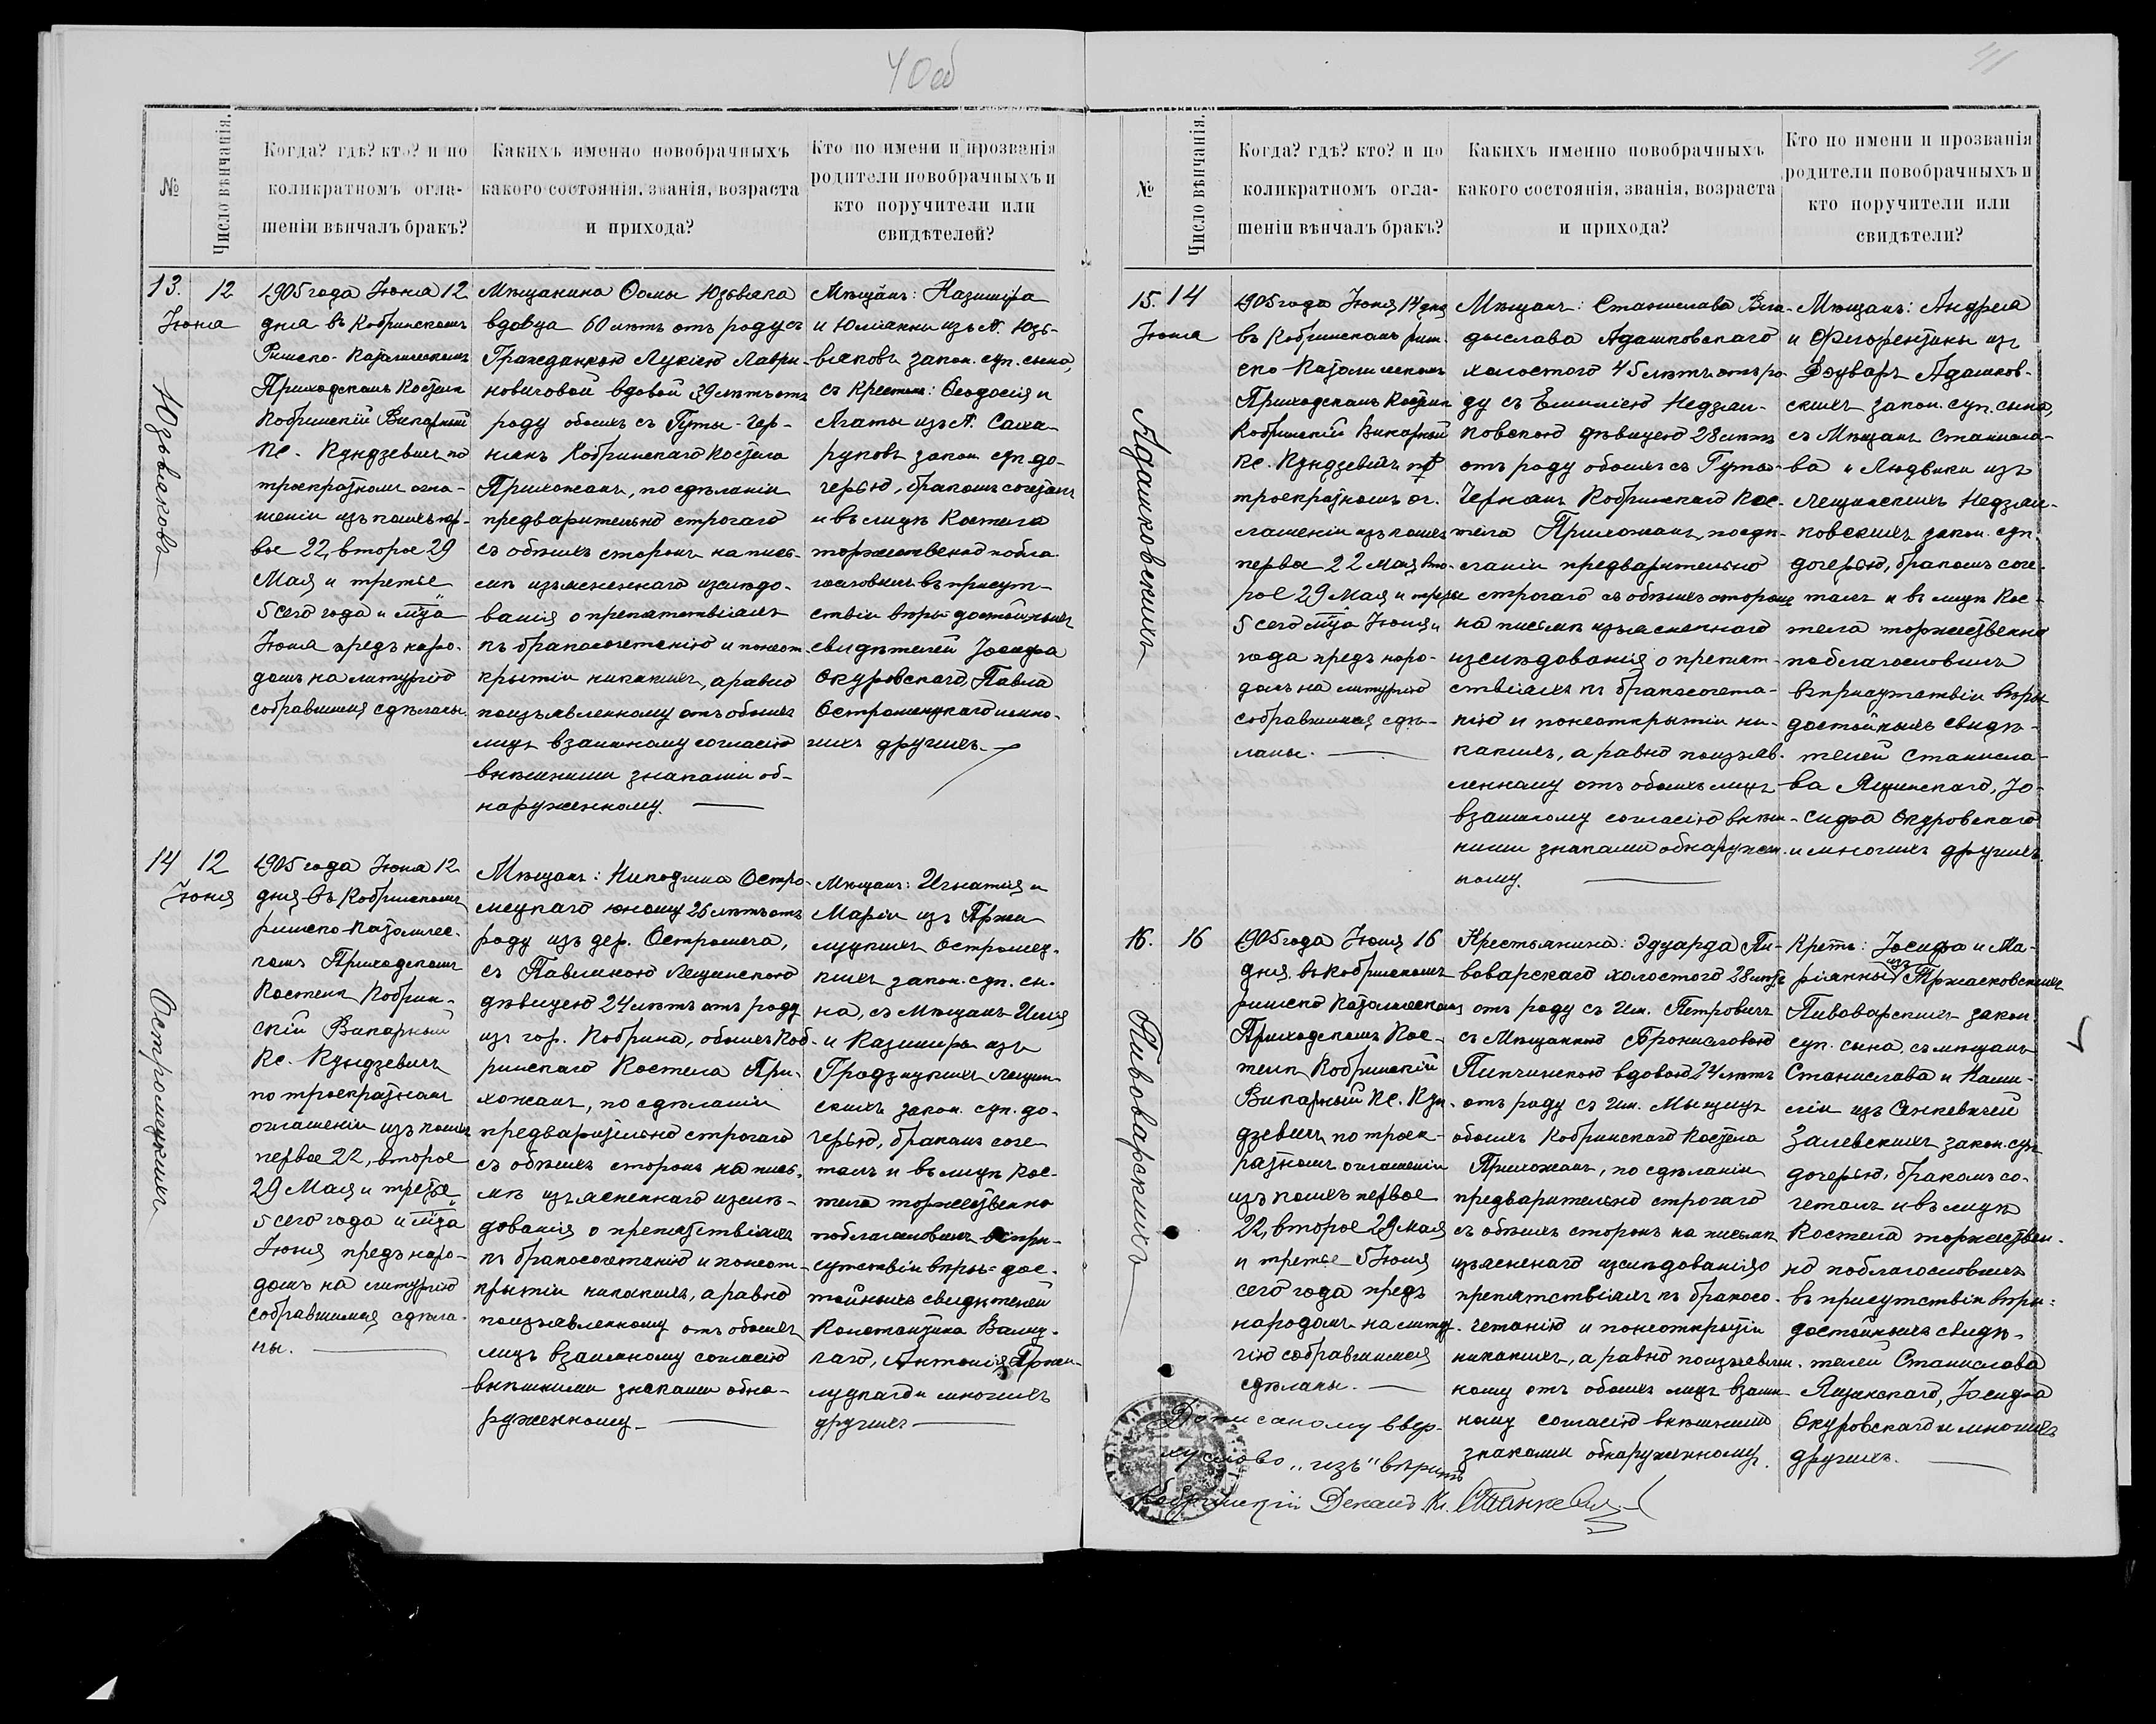 40 об
№
Число вѣнчанія.
Когда? гдѣ? кто? и по
коликратномъ огла-
шеніи вѣнчалъ бракъ?
Какихъ именно новобрачныхъ
какого состоянія, званія, возраста
и прихода?
Кто по имени и прозванія
родители новобрачныхъ и
кто поручители или
свидѣтелей?
13.
12
Июня
Юзьвяковъ
1905 года Іюня 12
дня въ Кобринскомъ
Римско-Католическомъ
Приходскомъ Костелѣ
Кобринскій Викарный
Кс. Кундзевичъ по
троекратномъ огла-
шеніи изъ коихъ пер-
вое 22, второе 29
Мая и третье
5 сего года и мца
Іюня предъ наро-
домъ на литургію
собравшимся сдѣланы.
Мѣщанина Ѳомы Юзьвяка
вдовца 60 лѣтъ отъ роду съ
Гражданкою Лукіею Лаври-
новичовой вдовой 39 лѣтъ отъ
роду обоихъ съ Гуты-Чер-
нянъ Кобринскаго Костела
Прихожанъ, по сдѣланіи
предварительно строгаго
съ обѣихъ сторонъ на пись-
мѣ изъясненнаго изслѣдо-
ванія о препятствіяхъ
къ бракосочетанію и по неот-
крытіи никакихъ, а равно
по изъявленному отъ обоихъ
лицъ взаимному согласію
внѣшними знаками об-
наруженному.
Мѣщанъ: Казиміра
и Юліанны изъ N. Юзь-
вяковъ закон. суп. сына,
съ Крестьян: Ѳеодосія и
Агаты изъ N. Сама-
руковъ закон. суп. до-
черью, бракомъ сочеталъ
и въ лицѣ Костела
торжественно побла-
гословилъ въ присут-
ствіи вѣры достойныхъ
свидѣтелей Іосифа
Окуровскаго, Павла
Остромецкаго и мно-
гихъ другихъ.
14
12
Іюня
Остромецкихъ
1905 года Іюня 12
дня въ Кобринскомъ
римско-католичес-
комъ Приходскомъ
Костелѣ Кобрин-
скій Викарный
Кс. Кундзевичъ
по троекратномъ
оглашеніи изъ коихъ
первое 22, второе
29 Мая и третье
5 сего года и мца
Іюня предъ наро-
домъ на литургію
собравшимся сдѣла-
ны.
Мѣщанъ: Никодима Остро-
мецкаго юношу 26 лѣтъ отъ
роду изъ дер. Остромеча,
съ Павлиною Лещинскою
дѣвицею 24 лѣтъ отъ роду
изъ гор. Кобрина, обоихъ Коб-
ринскаго Костела При-
хожанъ, по сдѣланіи
предварительно строгаго
съ обѣихъ сторонъ на пись-
мѣ изъясненнаго изслѣ-
дованія о препятствіяхъ
къ бракосочетанію и по неот-
крытіи никакихъ, а равно
по изъявленному отъ обоихъ
лицъ взаимному согласію
внѣшними знаками обна-
руженному.
Мѣщанъ: Игнатія и
Маріи изъ
Остромец-
кихъ закон. суп. сы-
на, съ Мѣщанъ
и Казиміры изъ
Гродзицкихъ Лещин-
скихъ закон. суп. до-
черью, бракомъ соче-
талъ и въ лицѣ Кос-
тела торжественно
поблагословилъ въ при-
сутствіи вѣры-дос-
тойныхъ свидѣтелей
Константина
Антонія
и многихъ
другихъ
41
№
Число вѣнчанія.
Когда? гдѣ? кто? и по
коликратномъ огла-
шеніи вѣнчалъ бракъ?
Какихъ именно новобрачныхъ
какого состоянія, званія, возраста
и прихода?
Кто по имени и прозванія
родители новобрачныхъ и
кто поручители или
свидѣтели?
15.
14
Іюня
Адашковскихъ
1905 года Іюня 14 дня
въ Кобринскомъ рим-
ско-католическомъ
Приходскомъ Костелѣ
Кобринскій Викарный
Кс. Кундзевичъ по
троекратномъ ог-
лашеніи изъ коихъ
первое 22 Мая вто-
рое 29 Мая и третье
5 сего мца Іюня и
года предъ наро-
домъ на литургію
собравшимся сдѣ-
ланы.
Мѣщанъ: Станислава Вла-
дыслава Адашковскаго
холостого 45 лѣтъ отъ ро-
ду съ Емиліею Недзвя-
ковскою дѣвицею 28 лѣтъ
отъ роду обоихъ съ Гуты-
Чернянъ Кобринскаго Кос-
тела Прихожанъ, по сдѣ-
ланіи предварительно
строгаго съ обѣихъ сторонъ
на письмѣ изъясненнаго
изслѣдованія о препят-
ствіяхъ къ бракосочета-
нію и по неоткрытіи ни-
какихъ, а равно по изъяв-
ленному отъ обоихъ лицъ
взаимному согласію внѣш-
ними знаками обнаружен-
ному.
Мѣщанъ: Андрея
и Флорентины изъ
Адашков-
скихъ закон. суп. сына,
съ Мѣщанъ Станисла-
ва и Людвики изъ
Лещинскихъ Недзвя-
ковскихъ закон. суп.
дочерью, бракомъ соче-
талъ и въ лицѣ Кос-
тела торжественно
поблагословилъ
въ присутствіи вѣры
достойныхъ свидѣ-
телей Станисла-
ва Ящинскаго, Іо-
сифа Окуровскаго
и многихъ другихъ.
16.
16
Пивоварскихъ
1905 года Іюня 16
дня въ Кобринскомъ
римско Католическомъ
Приходскомъ Кос-
телѣ Кобринскій
Викарный Кс. Кун-
дзевичъ по троек-
ратномъ оглашеніи
изъ коихъ первое
22, второе 29 Мая
и третье 5 Іюня
сего года предъ
народомъ на литур-
гію собравшимся
сдѣланы.
Крестьянина: Эдуарда Пи-
воварскаго холостого 28 лѣтъ
отъ роду съ Им. Петровичъ
съ Мѣщанкою Брониславою
Пипчинскою вдовою 24 лѣтъ
отъ роду съ Им. Мыщицъ
обоихъ Кобринскаго Костела
Прихожанъ, по сдѣланіи
предварительно строгаго
съ обѣихъ сторонъ на письмѣ
изъясненаго изслѣдованія о
препятствіяхъ къ бракосо-
четанію и по неоткрытіи
никакихъ, а равно по изъявлен-
ному отъ обоихъ лицъ взаим-
ному согласію внѣшними
знаками обнаруженному.
Крест: Іосифа и Ма-
ріянны изъ Тржасковскихъ
Пивоварскихъ закон.
суп. сына, съ мѣщанъ
Станислава и Ками-
ліи изъ Сенкевичей
Залевскихъ закон. суп.
дочерью, бракомъ со-
четалъ и въ лицѣ
Костела торжествен-
но поблагословилъ
въ присутствіи вѣры-
достойныхъ свидѣ-
телей Станислава
Ящинскаго, Іосифа
Окуровскаго и многихъ
другихъ.
Дописаному ввер-
ху слово „изъ" вѣрить
Кобринскій Деканъ Кс.